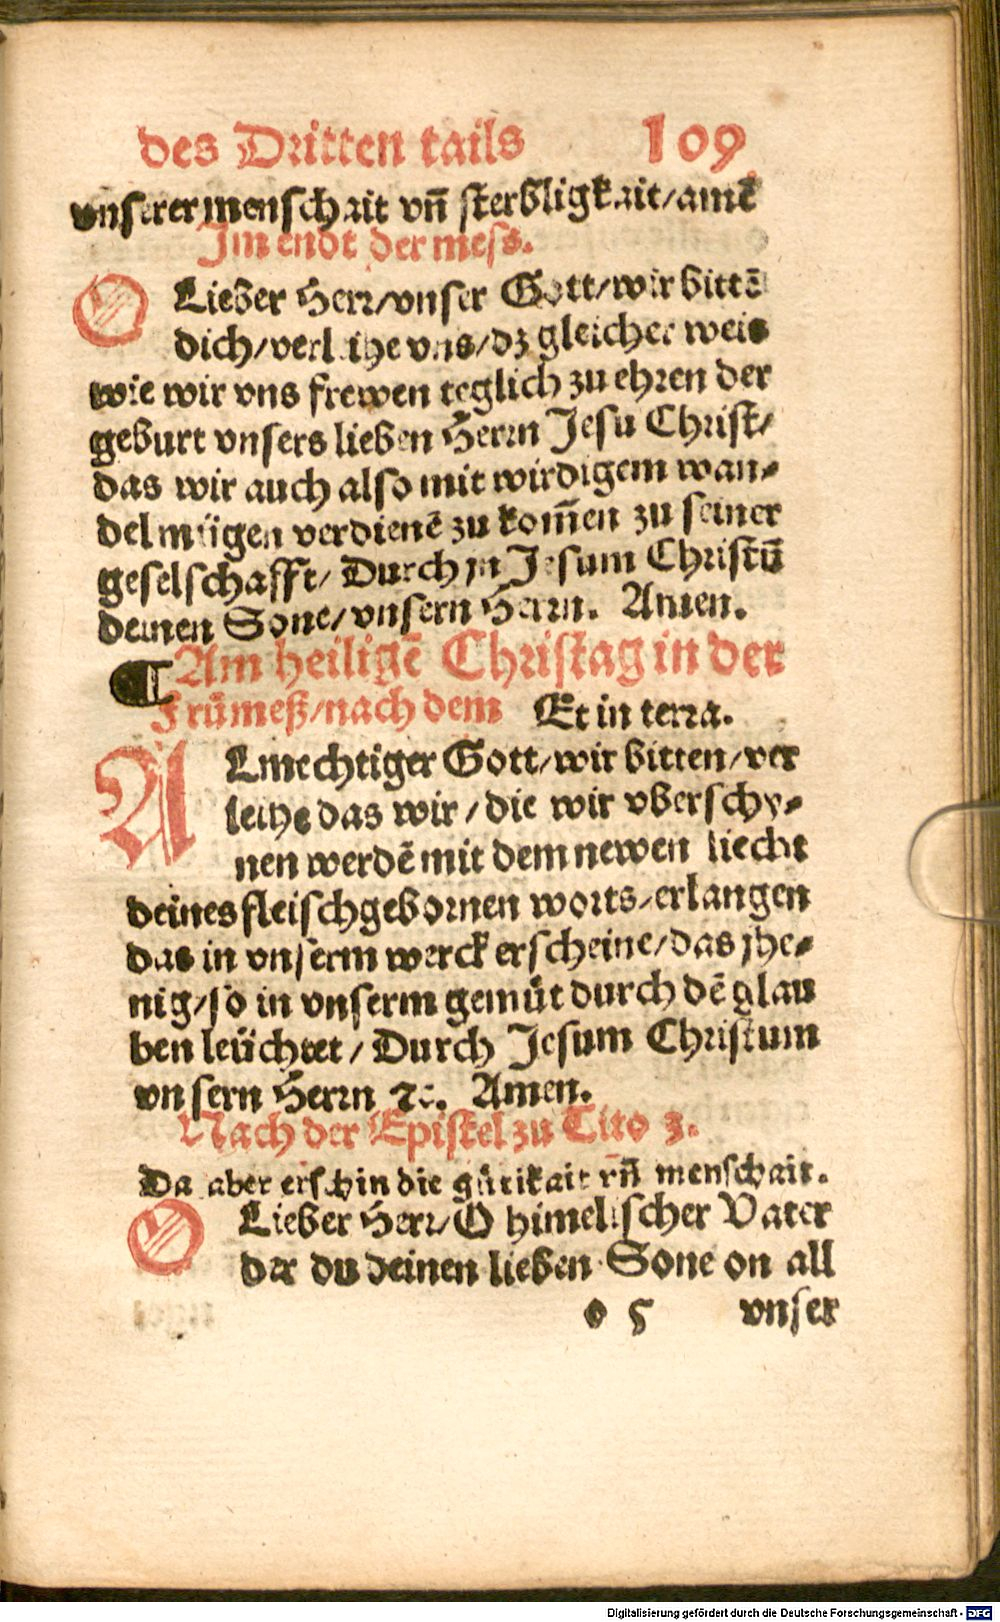 des Dritten tails 109
vnserer menschait vñ sterbligkait/amẽ
Im endt der mess.
O Lieber Herr/vnser Gott/wir bittẽ
dich/verleihe vns/dz gleicher weis
wie wir vns frewen teglich zu ehren der
geburt vnsers lieben Herrn Jesu Christ/
das wir auch also mit wirdigem wan-
del mügen verdienẽ zu kom̃en zu seiner
geselschafft/ Durch jn Jesum Christũ
deinen Sone/vnsern Herrn. Amen.
¶ Am heiligẽ Christag in der
Frümeß/nach dem Et in terra.
ALmechtiger Gott/wir bitten/ver
leihe das wir/die wir vberschy-
nen werdẽ mit dem newen liecht
deines fleischgebornen worts/erlangen
das in vnserm werck erscheine/das jhe-
nig/so in vnserm gemüt durch dẽ glau
ben leüchtet/ Durch Jesum Christum
vnsern Herrn ꝛc. Amen.
Nach der Epistel zu Tito 3.
Da aber erschin die gütikait vñ menschait.
O Lieber Herr/O himelischer Vater
der du deinen lieben Sone on all
o 5 vnser
Digitalisierung gefördert durch die Deutsche Forschungsgemeinschaft - DFG